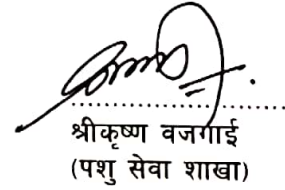 श्रीकृष्ण वजगाई
(पशु सेवा शाखा)